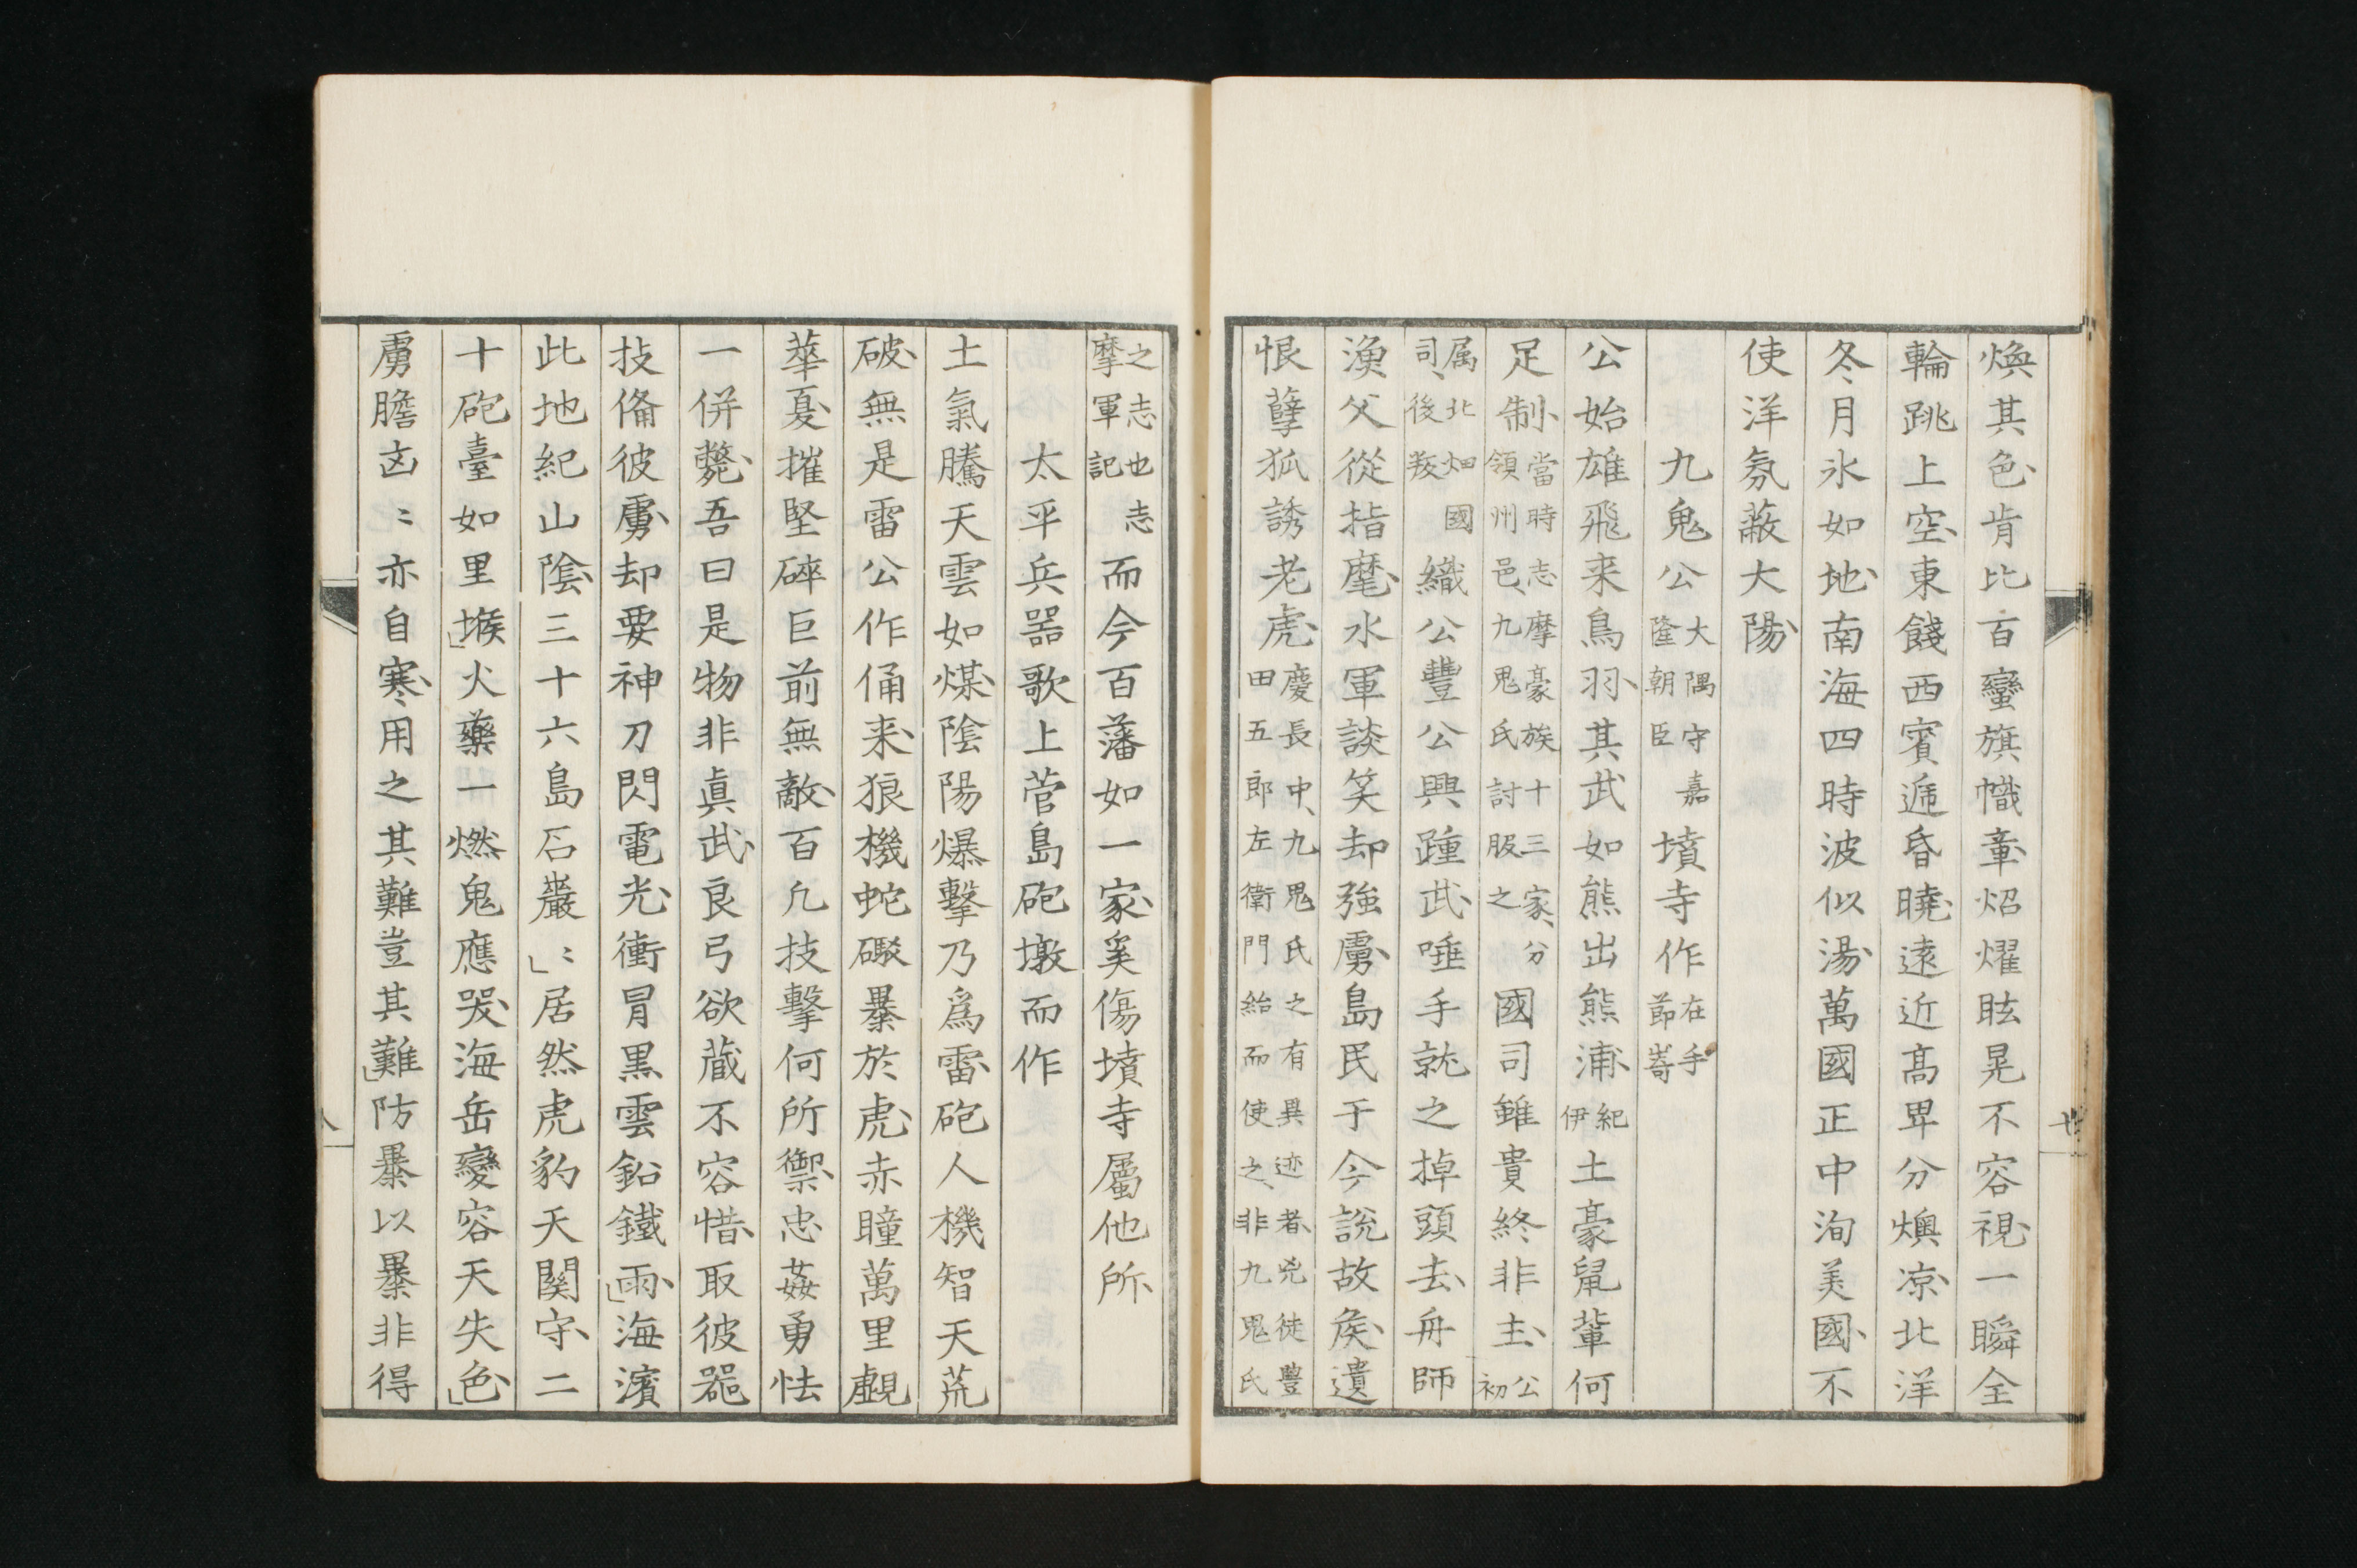 煥其色、肯比百蠻旗幟章、炤燿眩晃不容視、一瞬全
輪跳上空、東餞西賓遞昏曉、遠近高卑分燠凉、北洋
冬、月氷如地、南海四時波似湯、萬國正中洵美國、不
使洋氛蔽大陽、
九鬼公大隅守嘉隆朝臣墳寺作在手莭嵜
公始雄飛来鳥羽、其武如熊出熊浦、紀伊土豪鼠輩何
足制、當時志摩豪族十三家、分領州邑、九鬼氏討服之國司雖貴終非主、公初
属北畑國司、後叛織公豐公興踵武、唾手就之掉頭去、舟師
漁父從指麾、水軍談笑却強虜、島民于今説故矦、遺
恨孽狐誘老虎、慶長中、九鬼氏之有異迹者、兇徒豐田五郎左衛門紿而使之、非九鬼氏
之志也志摩軍記而今百藩如一家、奚傷墳寺屬他所、
太平兵噐歌上菅島砲墩而作
土氣騰天雲如煤、陰陽爆擊乃爲雷、砲人機智天荒
破、無是雷公作俑来、狼機蛇礟暴於虎、赤瞳萬里覷
華夏、摧堅碎巨前無敵、百凢技擊何所禦、忠姦勇怯
一併斃、吾曰是物非眞武、良弓欲蔵不容惜、取彼噐
技俻彼虜、却要神刀閃電光、衝冒黒雲鉛鐵雨、」海濱
此地紀山陰、三十六島石巖〻」居然虎豹天關守、二
十砲臺如里堠、」火藥一燃鬼應哭、海岳變容天失色、」
虜膽㐫〻亦自寒、用之其難豈其難、」防暴以暴非得